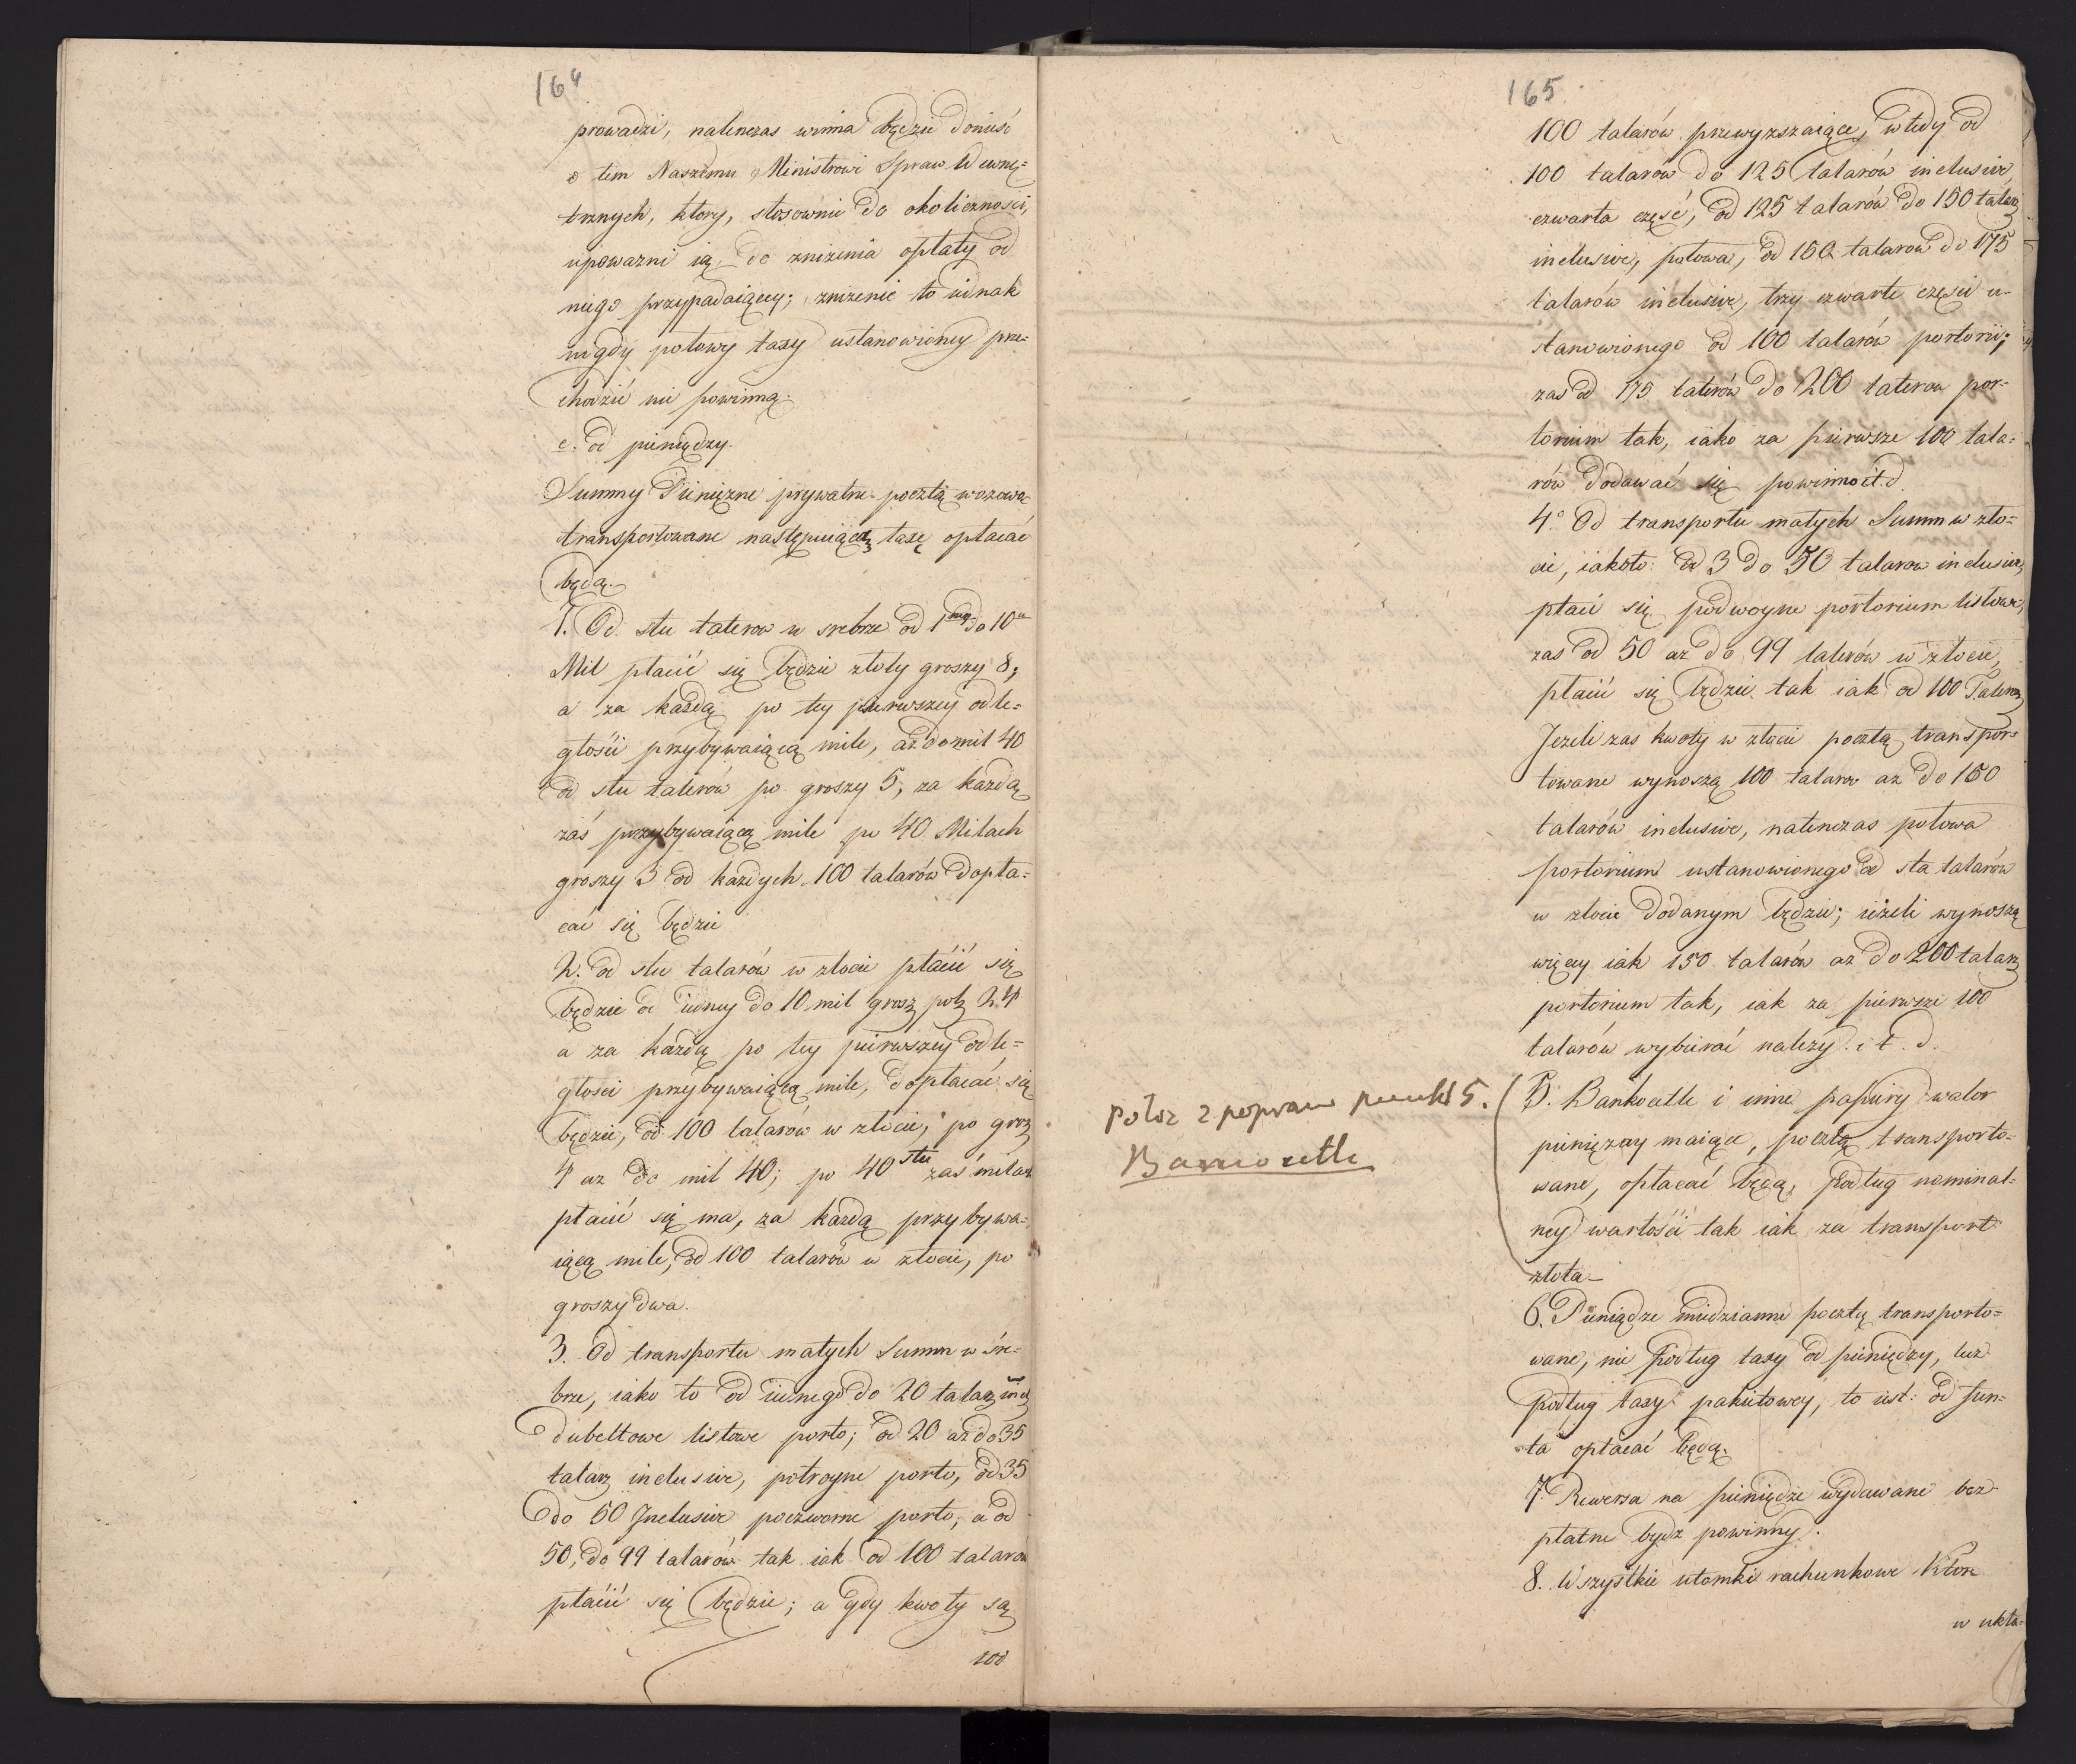 164
prowadzi, natenczas winna będzie donieść
o tem Naszemu Ministrowi Spraw Wewnę=
trznych, ktory, stosownie do okoliczności,
upowazni ią do znizenia opłaty od
niego przypadaiącey; znizenie to iednak
nigdy połowy taxy ustanowioney prze=
chodzić nie powinną.
c. od pieniędzy.
Summy Pieniężne prywatne pocztą wozową
transportowane następuiącą taxę opłacać
będą.
1. Od stu talerow w srebrze od 1 mey do 10 u
Mil płacić się będzie złoty groszy 8;
a za każdą po tey pierwszey odle=
głości przybywaiącą mile, aż do mil 40
od stu talerów po groszy 5, za każdą
zaś przybywaiącą mile po 40 Milach
groszy 3 od każdych 100 talarów dopła=
cać się będzie
2. od stu talarów w złocie płacić się
będzie od iedney do 10 mil grosz pol 24
a za każdą po tey pierwszey odle=
głości przybywaiącą mile, dopłacać się
będzie, od 100 talarów w złocie, po grosz
4 az do mil 40; po 40 stu zaś milach
płacić się ma, za każdą przybywa=
iącą mile, od 100 talarów w złocie, po
groszy dwa.
3. Od transportu małych Summ w śre=
brze, iako to od iednego do 20 talarz incl
dubeltowe listowe porto; od 20 aż do 35
talarz inclusive, potroyne porto, od 35
do 50 Inclusive poczworne porto; a od
50, do 99 talarów tak iak od 100 talarow
płacić się będzie; a gdy kwoty są
100
165
100 talarów przewyzszaiące, wtedy od
100 talarów do 125 talarów inclusive,
czwarta część, od 125 talarów do 150 talarz
inclusive, połowa, od 150 talarow do 175
talarów inclusive, trzy czwarte części u=
stanowionego od 100 talarów portorii;
zas od 175 talerów do 200 talerow por=
torium tak, iako za pierwsze 100 tala=
rów dodawać się powinno it.d
4.° Od transportu małych Summ w zło=
cie, iakoto: od 3 do 50 talarow inclusive,
płaci się podwoyne portorium listowe,
zas od 50 az do 99 talerów w złocie,
płacić się będzie tak iak od 100 Talerow
Jezeli zas kwoty w złocie pocztą transpor=
towane wynoszą 100 talarow az do 150
talarów inclusive, natenczas połowa
portorium ustanowionego od sta talarów
w złocie dodanym będzie; ieżeli wynoszą
więcey iak 150 talarów az do 200 talarz
portorium tak, iak za pierwsze 100
talarów wybierać nalezy. i t. d.
5. Bankocetle i inne papiery walor
pieniężny maiące, pocztą transporto=
wane, opłacać będą, podług nominal=
ney wartości tak iak za transport
złota_
Połoz z popraw punkt 5.
Bancocetle
6. Pieniądze miedzianne pocztą transporto=
wane, nie podług taxy od pieniędzy, lecz
podług taxy pakietowey, to iest: od fun=
ta opłacać będą.
7. Rewersa na pieniądze wydawane bez
płatne bydz powinny.
8. Wszystkie ułomki rachunkowe Które
w ukła=